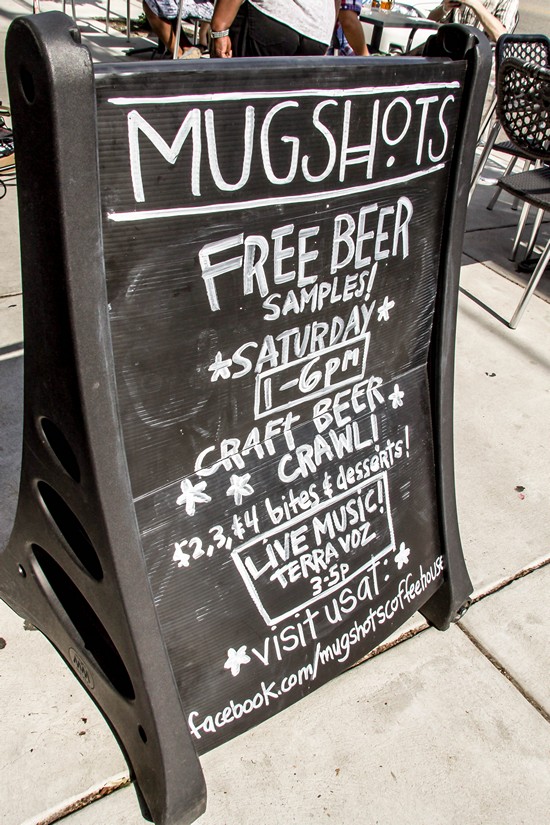 MUGSHOTS
FREE BEER
SAMPLES!
*SATURDAY*
1-6pm
CRAFT BEER
CRAWL!
$2,3,$4 bites & desserts!
LIVE MUSIC!
TERRA VOZ
3-5p
*visit us at:*
facebook.com/mugshotscoffeehouse